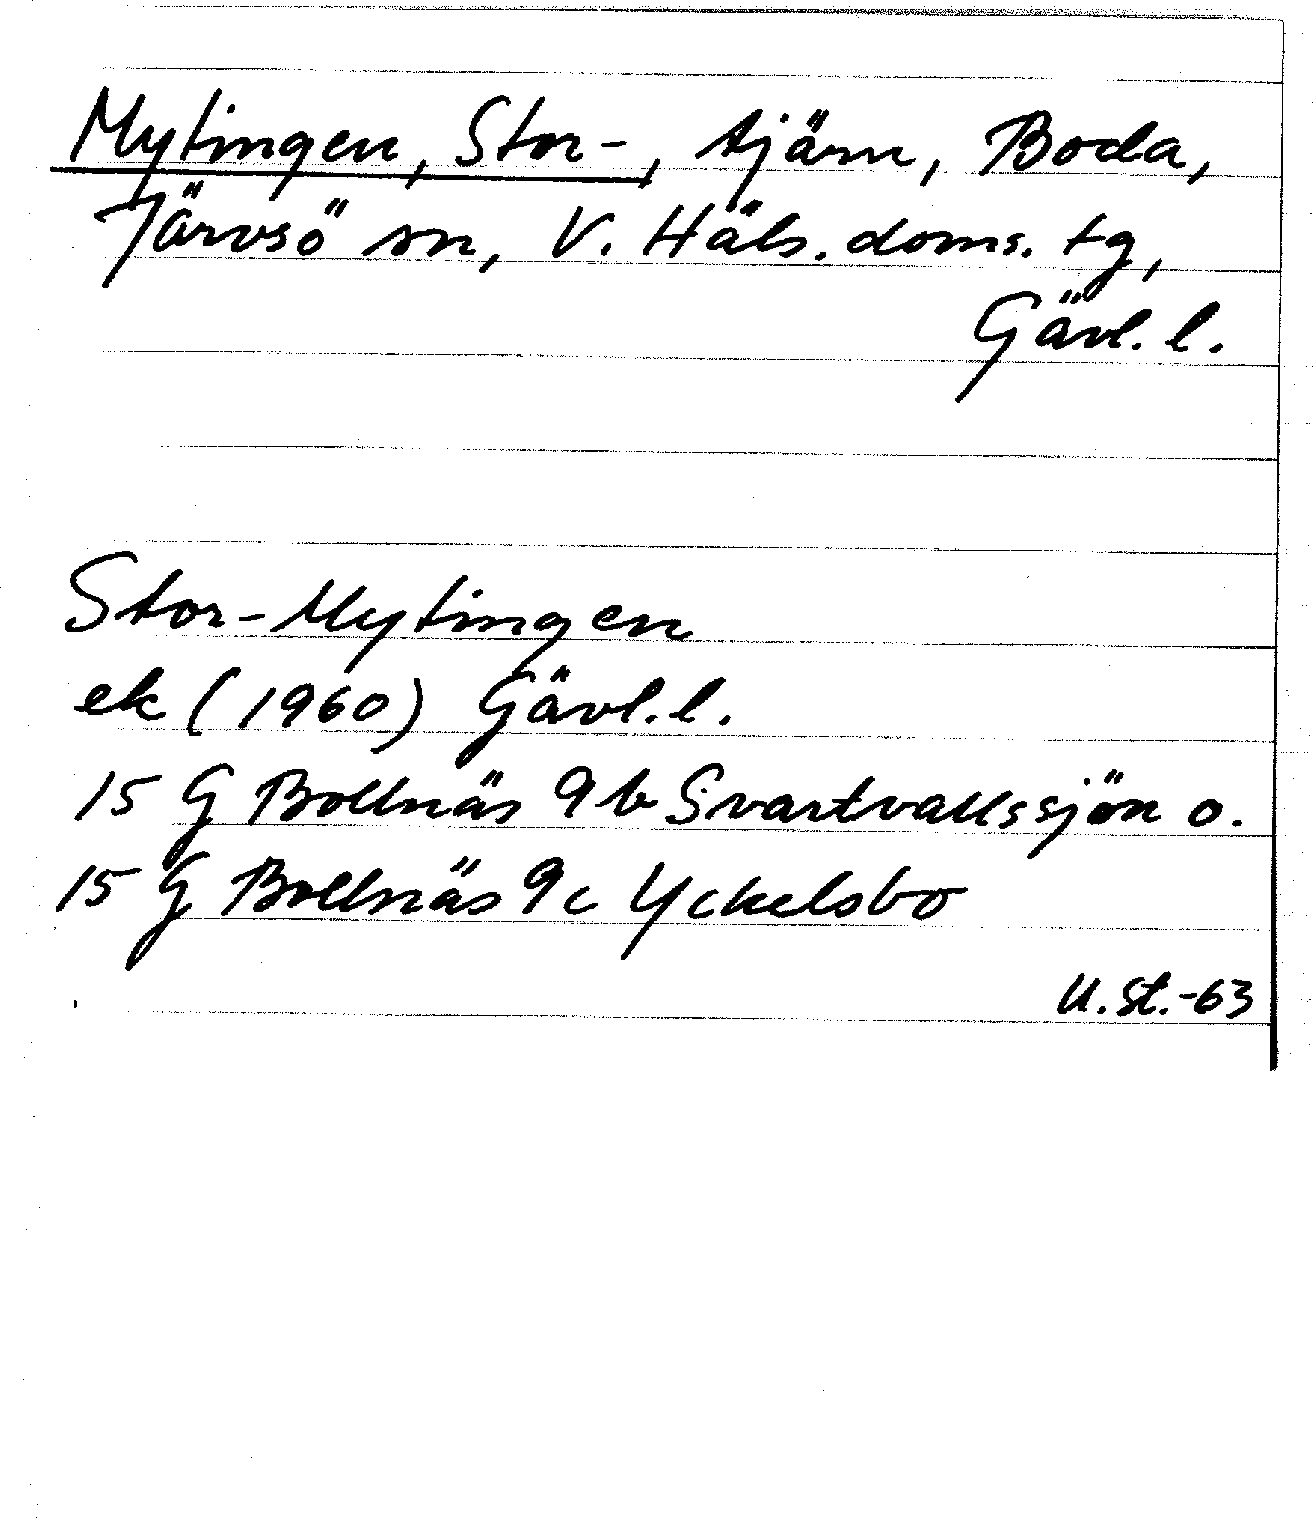 Mytingen, Stor-, tjärn, Boda,
Järvsö sn, V. Häls. doms. tg,
Gävl. l.
Stor-Mytingen
ek (1960) Gävl. l.
15 G Bollnäs 9b Svartvallssjön o.
15 G Bollnäs 9c Yckelsbo
U. St. -63